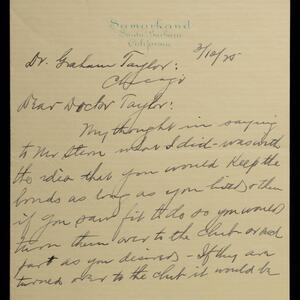 Samarkand
Santa Barbara
California
3/12/25
Dr. Graham Taylor:
Chicago
Dear Doctor Taylor:
My thought in saying
to Mr Stern what I did - was with
the idea that you would keep the
bonds as long as you liked & then
if you saw fit to do so you would
turn them over to the club or a
part as you desired - If they are
turned over to the club it would be